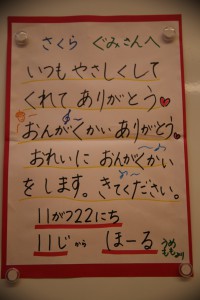 さくら ぐみさんへ
いつも やさしくして
くれて ありがとう
おんがくかい ありがとう
おれいに おんがくかい
をします。きてください。
11がつ22にち
11じから ほーる
うめ
ももより